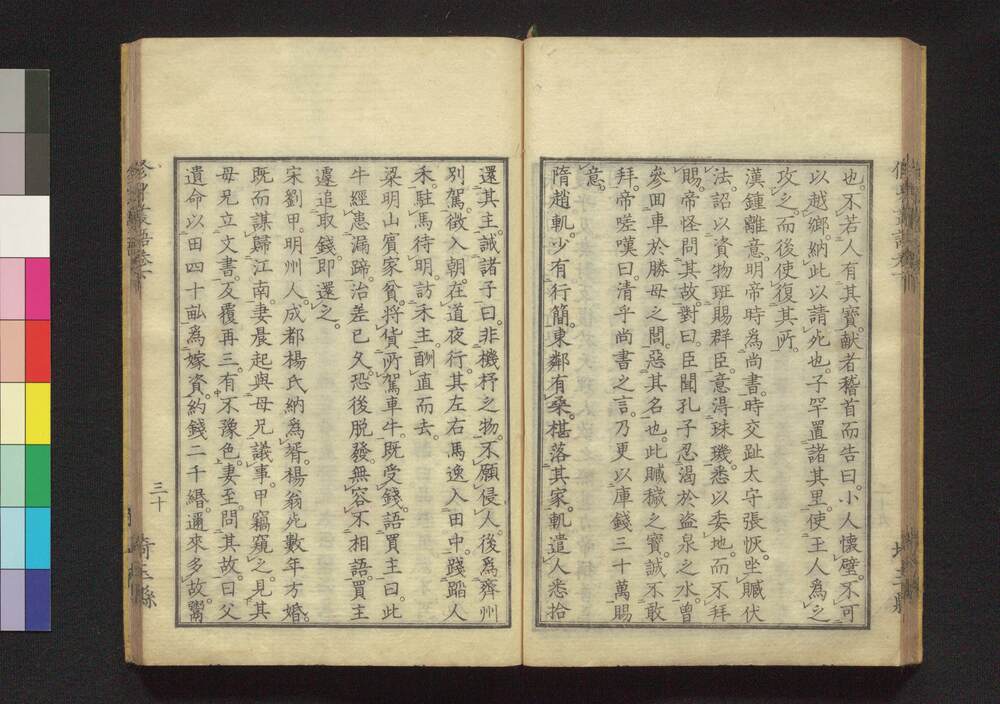 也。不若人有其寳。献者稽首而告曰。小人懷璧。不可
以越鄉。納此以請死也。子罕置諸其里。使玉人為之
攻之。而後使復其所。
漢鍾離意。明帝時為尚書。時交趾太守張恢。坐贓伏
法。詔以資物班賜群臣。意淂珠璣。悉以委地。而不拜
賜。帝怪問其故。對曰。臣聞孔子忍渴於盗泉之水。曽
參囬車於勝母之閭。惡其名也。此贓穢之寳。誠不敢
拜。帝嗟嘆曰。清乎尚書之言。乃更以庫錢三十萬賜
意。
隋趙軌。少有行簡。東鄰有桑。椹落其家。軌遣人悉拾
還其主。誡諸子曰。非機杼之物。不願侵人。後為齊州
別駕。徴入朝。在道夜行。其左右馬逸入田中。踐蹈人
禾。駐馬待明。訪禾主。酬直而去。
梁明山賓家貧。将貨所駕車牛。既受錢。語買主曰。此
牛經患漏蹄。治差已久。恐後脱發。無容不相語。買主
遽追取錢。即還之。
宋劉甲。明州人。成都楊氏納為壻。楊翁死数年方婚。
既而謀歸江南。妻晨起與母兄議事。甲竊窺之。見其
母兄立文書。反覆再三。有不豫色。妻至。問其故。曰父
遺命以田四十畆為嫁資。約錢二千緡。邇來多故。鬻
三十
埼玉縣